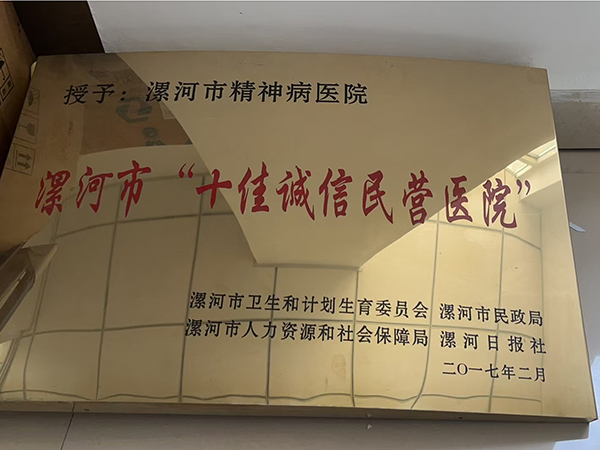 授予：漯河市精神病医院
漯河市“十佳诚信民营医院”
漯河市卫生和计划生育委员会 漯河市民政局
漯河市人力资源和社会保障局 漯河日报社
二〇一七年二月